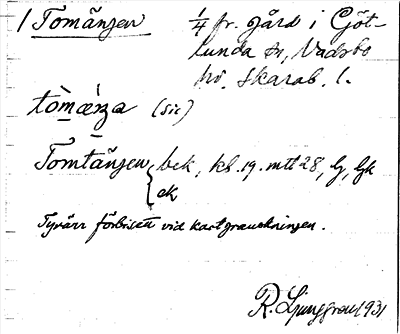 1 Tomängen ¼ fr. gård i Göt-
lunda sn, Vadsbo
hd. Skarab. l.
tòmæ̀ŋa (sic)
Tomtängen bek, kl. 19. mtl 28, G, Gk
ek
Tyvärr förbisett vid kartgranskningen.
R. Ljunggren 1931